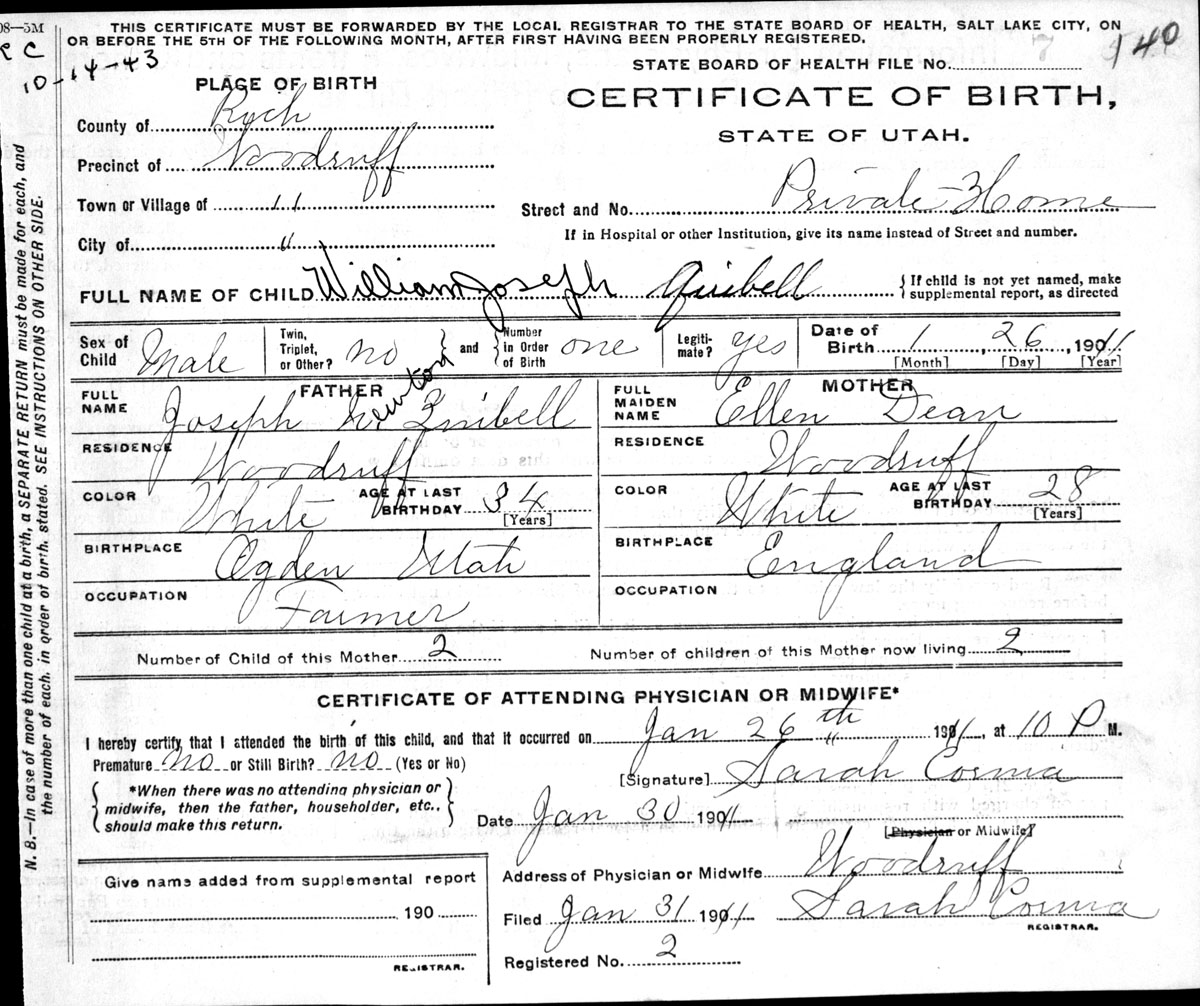 08—5M
THIS CERTIFICATE MUST BE FORWARDED BY THE LOCAL REGISTRAR TO THE STATE BOARD OF HEALTH, SALT LAKE CITY, ON
OR BEFORE THE 5TH OF THE FOLLOWING MONTH, AFTER FIRST HAVING BEEN PROPERLY REGISTERED.
10-14-43
STATE BOARD OF HEALTH FILE No. 140
PLACE OF BIRTH
CERTIFICATE OF BIRTH,
STATE OF UTAH.
County of Rich
Precinct of Woodruff
Town or Village of 11
Street and No. Private Home
City of "
If in Hospital or other Institution, give its name instead of Street and number.
FULL NAME OF CHILD William Joseph
If child is not yet named, make
supplemental report, as directed
Sex of Child Male Twin, Triplet, or Other? no and Number in Order of Birth one Legiti-mate? yes Date of Birth 1, 26, 1911
[Month] [Day] [Year]
FATHER MOTHER
FULL NAME Joseph Newton FULL MAIDEN NAME Ellen Dean
RESIDENCE Woodruff RESIDENCE Woodruff
COLOR White AGE AT LAST BIRTHDAY 34 [Years] COLOR White AGE AT LAST BIRTHDAY 28 [Years]
BIRTHPLACE Ogden Utah BIRTHPLACE England
OCCUPATION Farmer OCCUPATION
Number of Child of this Mother 2 Number of children of this Mother now living 2
CERTIFICATE OF ATTENDING PHYSICIAN OR MIDWIFE*
I hereby certify, that I attended the birth of this child, and that it occurred on Jan 26th 1911, at 10 P M.
Premature no or Still Birth? no (Yes or No)
[Signature] Sarah
*When there was no attending physician or
midwife, then the father, householder, etc.,
should make this return.
Date Jan 30 1911
[Physician or Midwife]
Address of Physician or Midwife Woodruff
Give name added from supplemental report
190
Filed Jan 31 1911 Sarah
REGISTRAR.
Registered No. 2
REGISTRAR.
N. B.—In case of more than one child at a birth, a SEPARATE RETURN must be made for each, and
the number of each, in order of birth, stated. SEE INSTRUCTIONS ON OTHER SIDE.